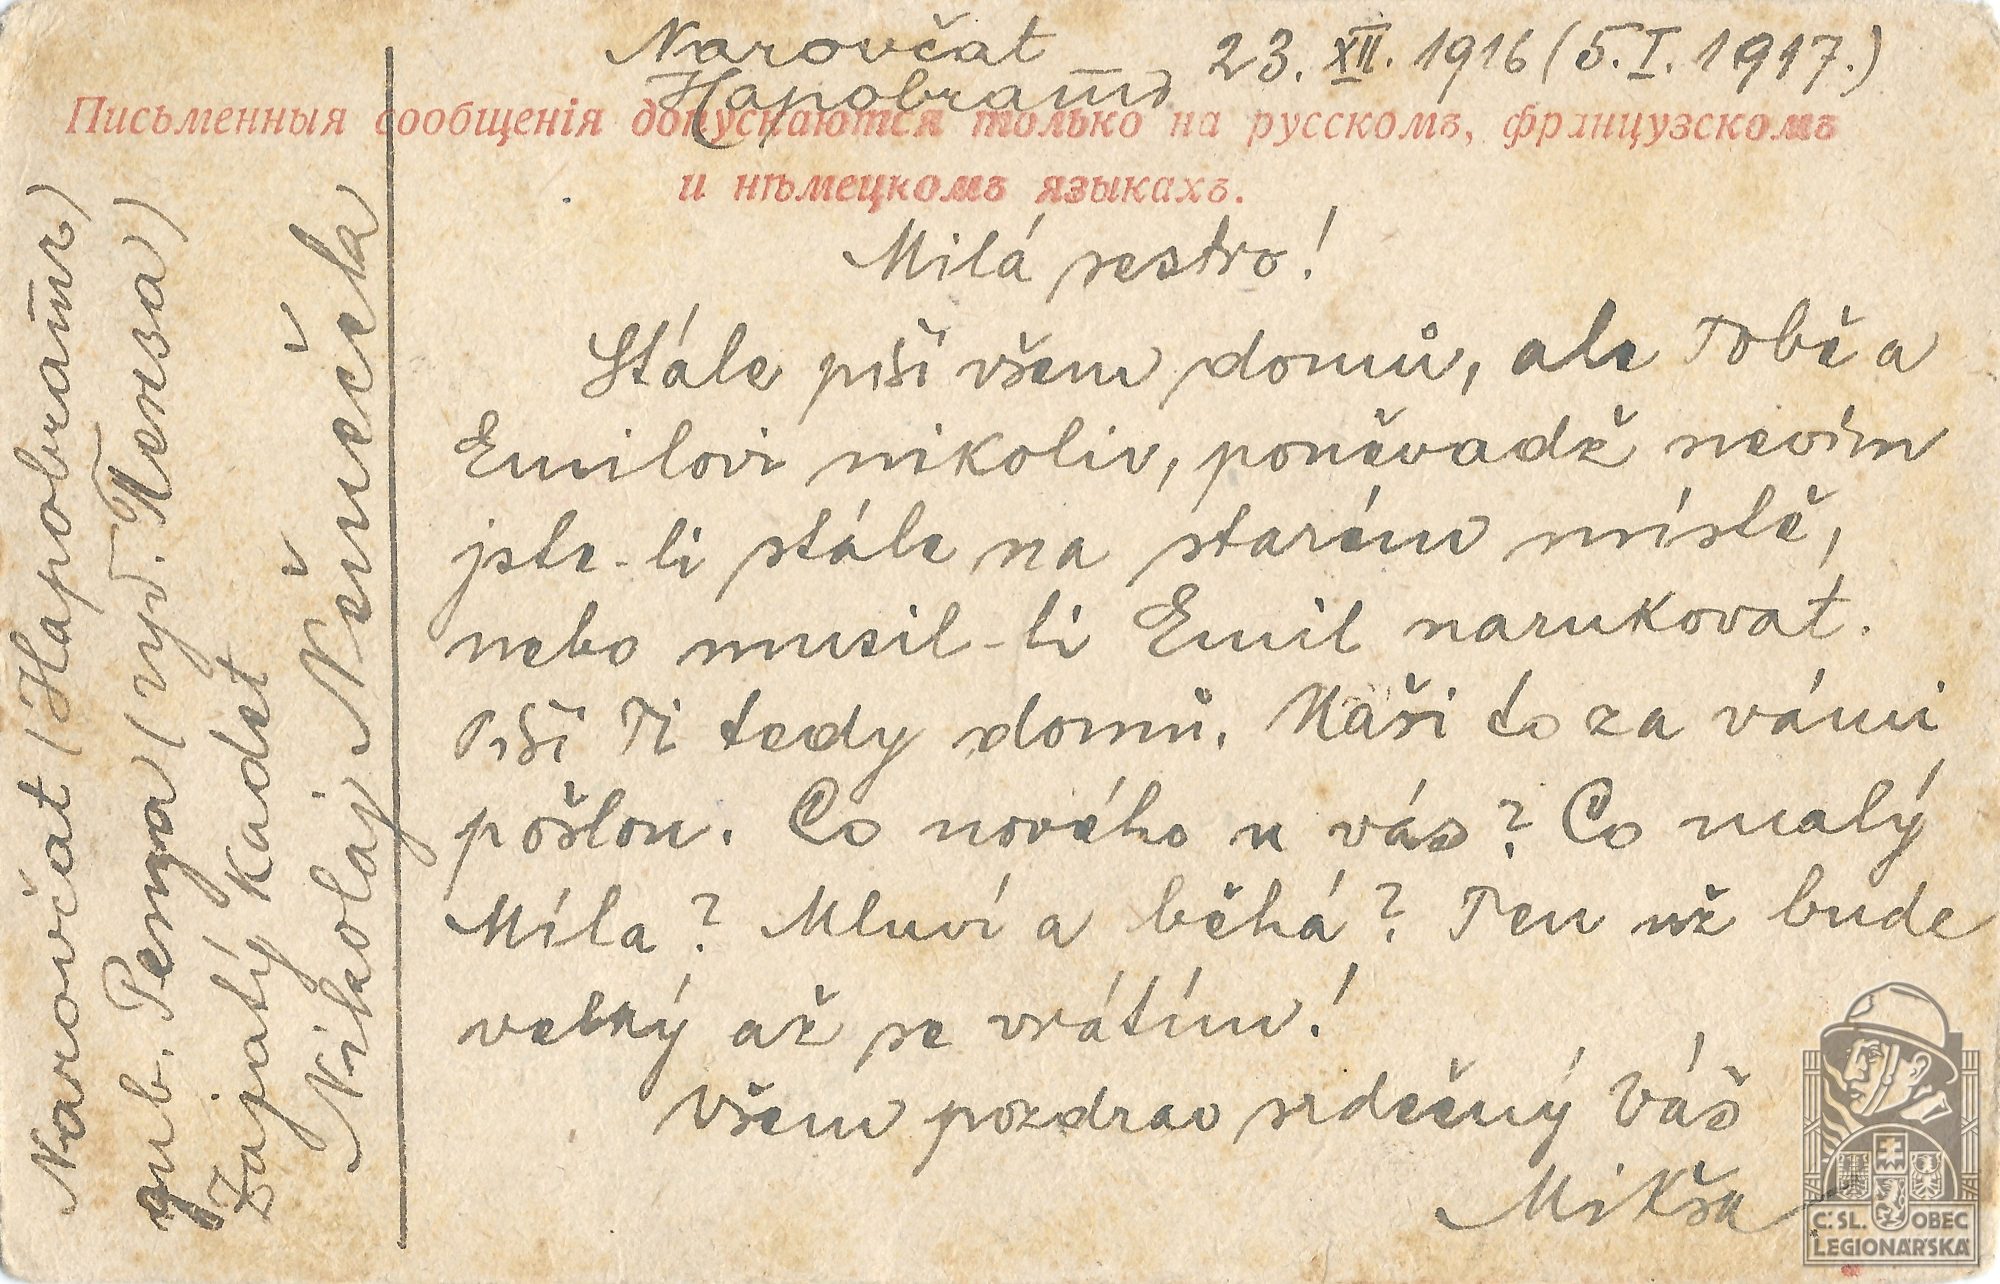 Narovčat 23. XII. 1916 (5. I. 1917.)
Наровчатъ
Письменныя сообщенія допускаются только на русскомъ, французскомъ
и нѣмецкомъ языкахъ.
Milá sestro!
Stále píši všem domů, ale Tobě a
Emilovi nikoliv, poněvadž nevím
jste-li stále na starém místě,
nebo musil-li Emil narukovat.
Píši Ti tedy domů. Naši to za vámi
pošlou. Co nového u vás? Co malý
Míla? Mluví a běhá? Ten už bude
velký až se vrátím!
Všem pozdrav srdečný Váš
Mikša
Narovčat (Наровчатъ)
gub. Penza ( Пенза)
Zajatý kadet
Nikolaj Němeček
Č. SL. OBEC
LEGIONÁŘSKÁ